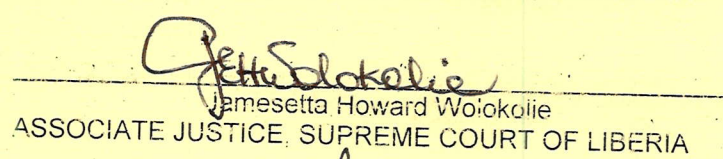 Jamesetta Howard Wolokolie
ASSOCIATE JUSTICE, SUPREME COURT OF LIBERIA